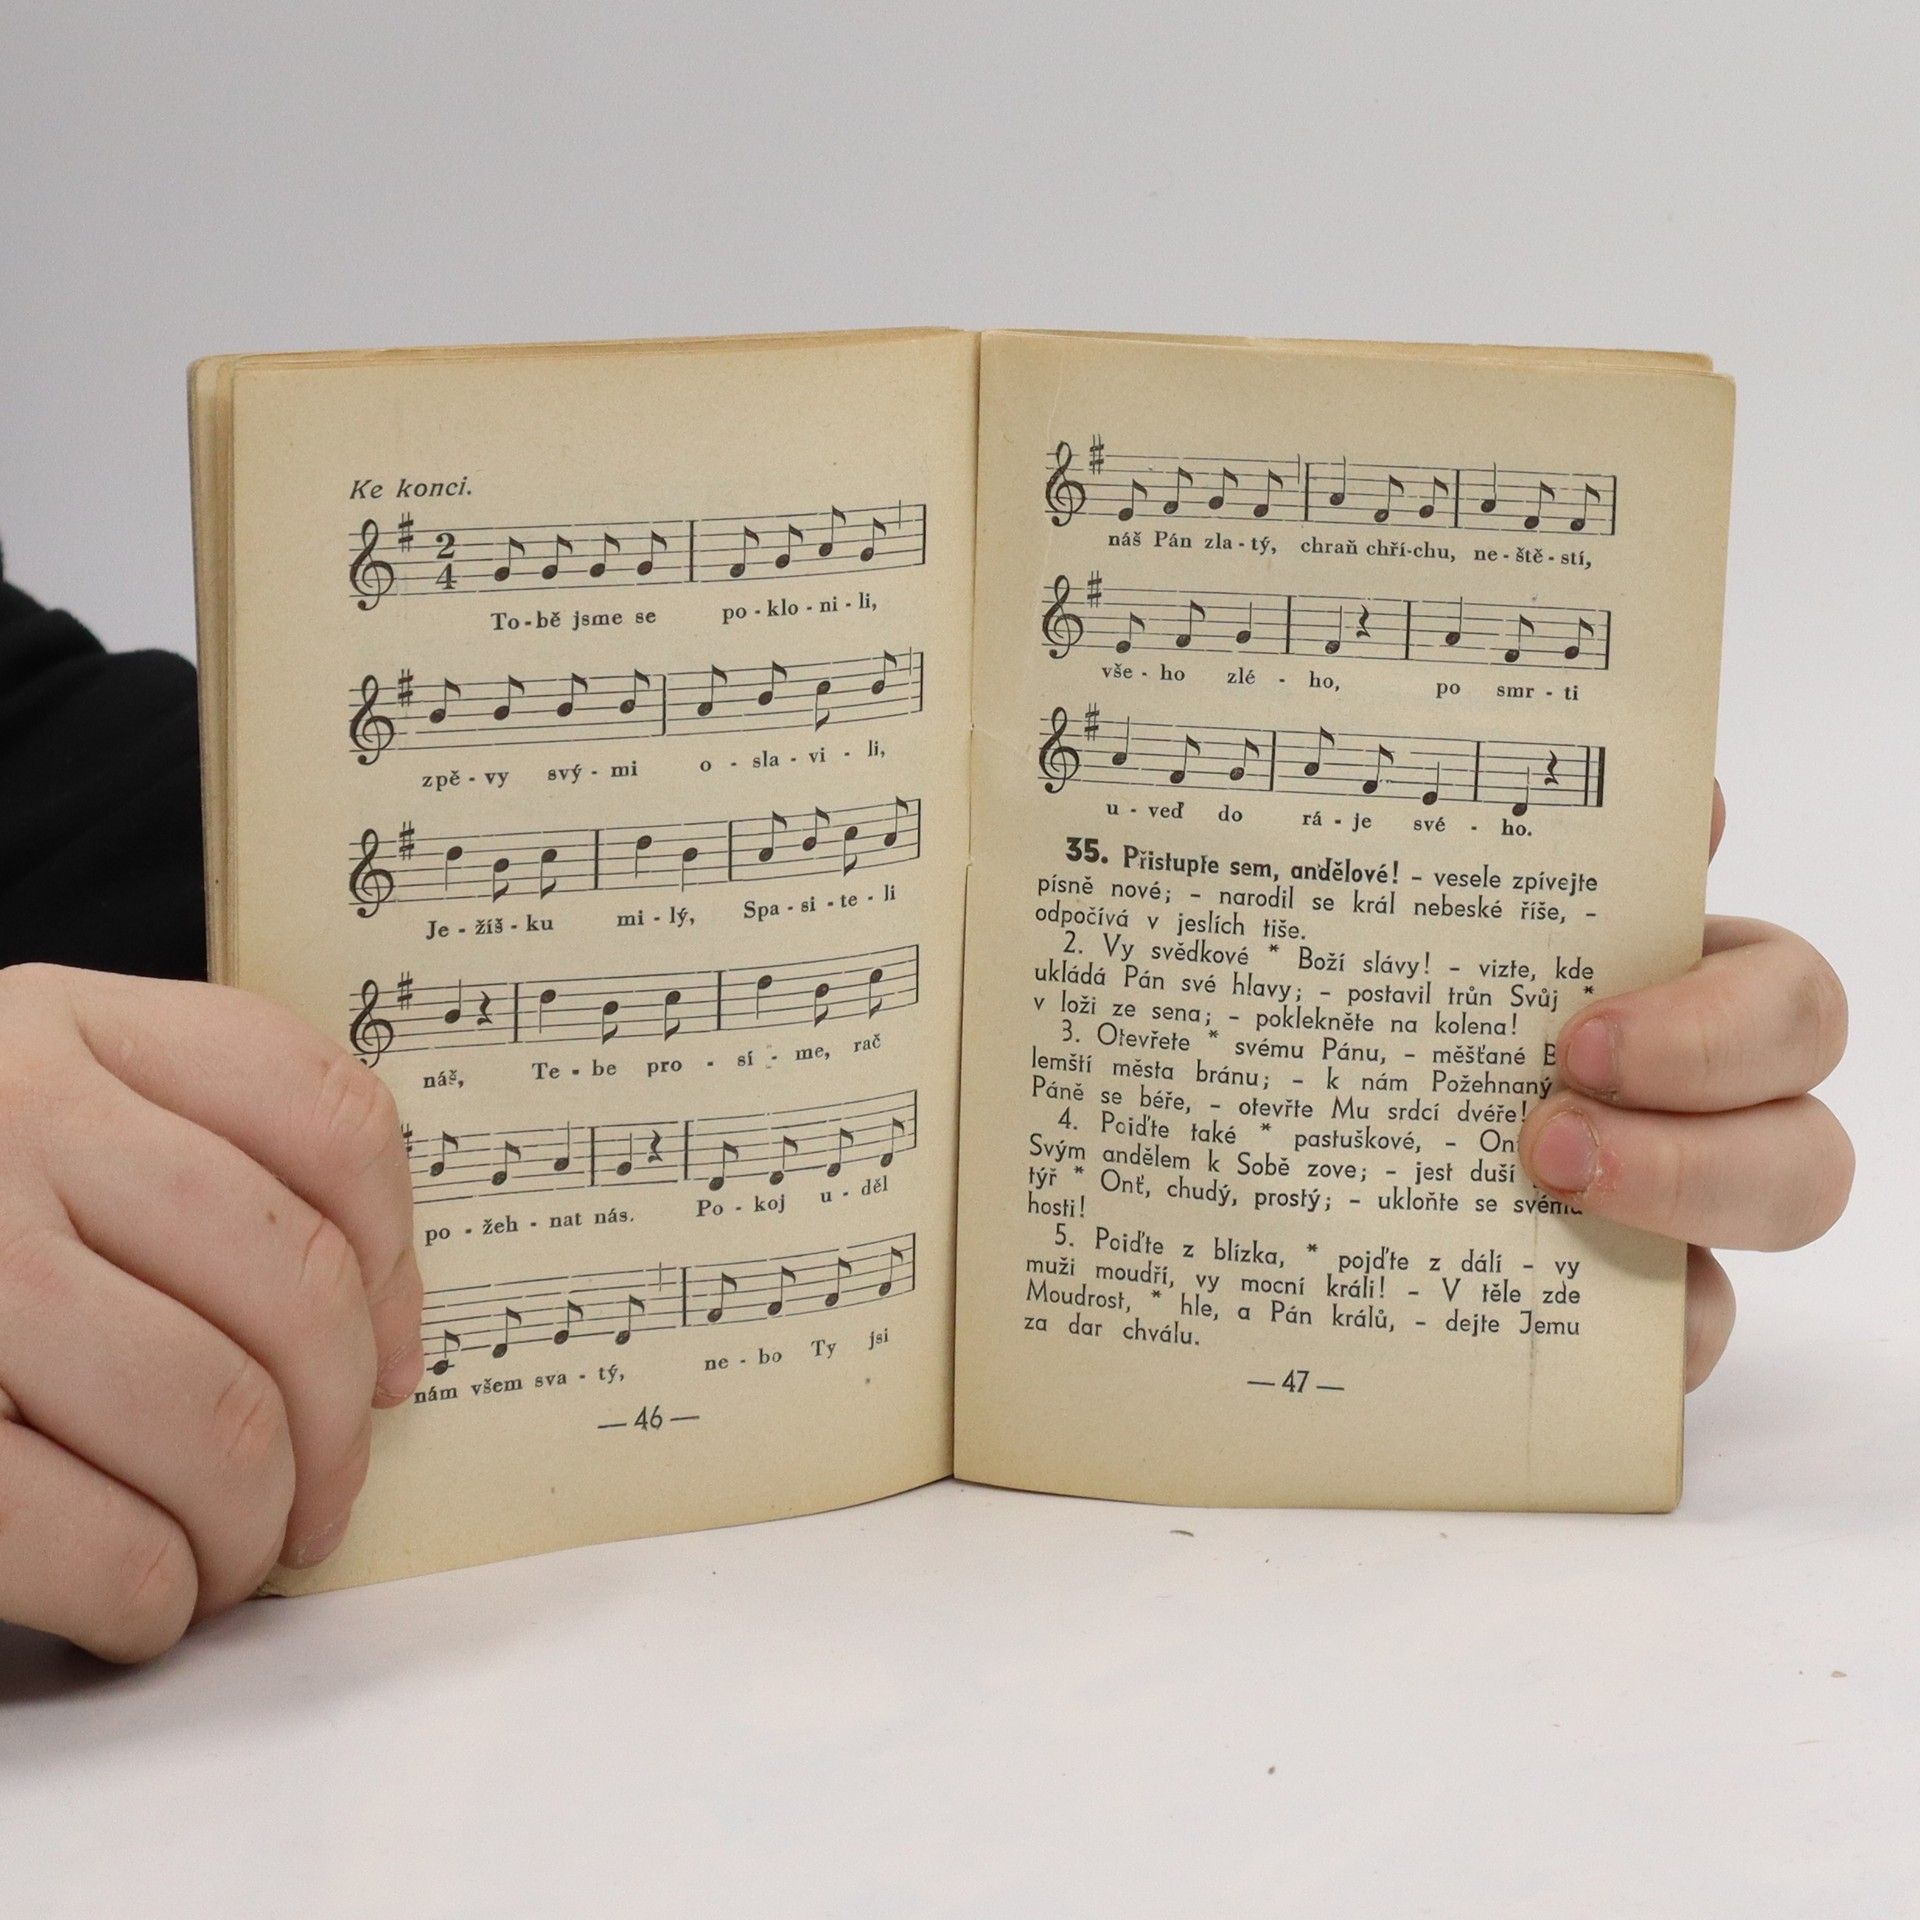 Ke konci.
2
4
To - bě jsme se po - klo - ni - li,
zpě - vy svý - mi o - sla - vi - li,
Je - žíš - ku mi - lý, Spa - si - te - li
náš, Te - be pro - sí - me, rač
po - žeh - nat nás. Po - koj u - děl
nám všem sva - tý, ne - bo Ty jsi
— 46 —
náš Pán zla - tý, chraň chří-chu, ne - ště - stí,
vše - ho zlé - ho, po smr - ti
u - veď do rá - je své - ho.
35. Přistupte sem, andělové! – vesele zpívejte
písně nové; – narodil se král nebeské říše, –
odpočívá v jeslích tiše.
2. Vy svědkové * Boží slávy! – vizte, kde
ukládá Pán své hlavy; – postavil trůn Svůj *
v loži ze sena; – poklekněte na kolena!
3. Otevřete * svému Pánu, – měšťané
lemští města bránu; – k nám Požehnaný
Páně se béře, – otevřte Mu srdcí dvéře!
4. Pojďte také * pastuškové, –
Svým andělem k Sobě zove; – jest duší
týř * Onť, chudý, prostý; – ukloňte se svému
hosti!
5. Pojďte z blízka, * pojďte z dálí – vy
muži moudří, vy mocní králi! – V těle zde
Moudrost, * hle, a Pán králů, – dejte Jemu
za dar chválu.
— 47 —